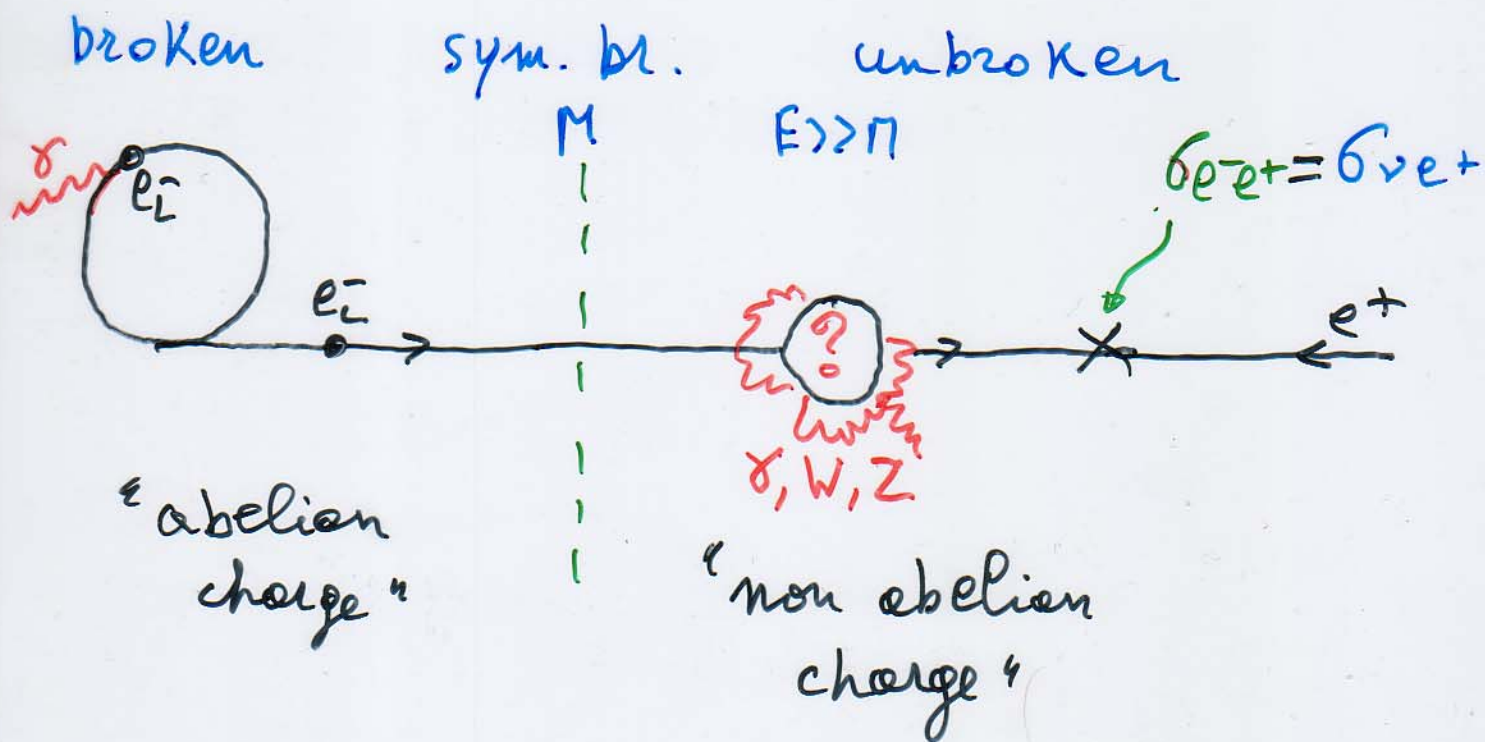 broken sym. br. unbroken
M E>>M
γ
e⁻_L
σe⁻e⁺ = σνe⁺
e⁻_L
e⁺
?
γ, W, Z
"abelian
charge"
"non abelian
charge"